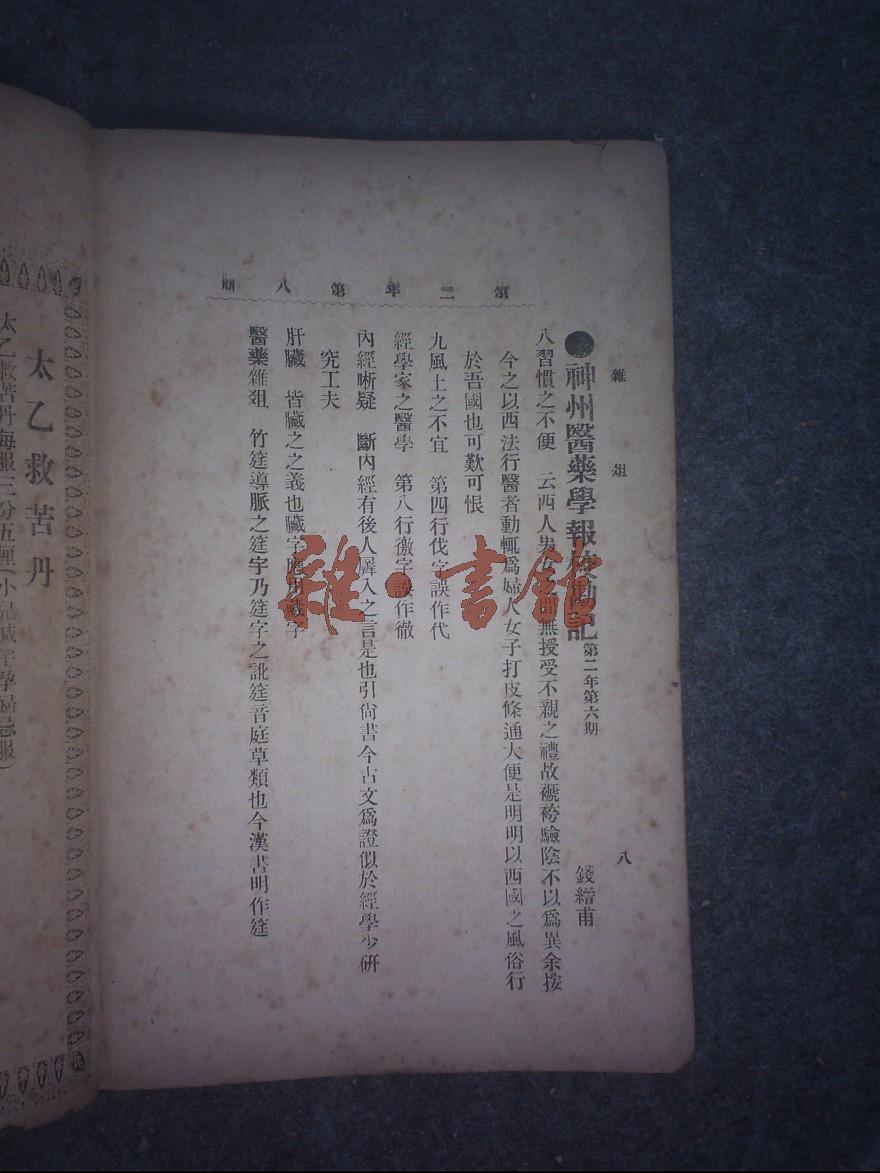 雜俎
八
●神州醫藥學報校勘記 第二年第六期 錢縉甫
八習慣之不便 云西人男女之間無授受不親之禮故褫袴驗陰不以爲異余按
今之以西法行醫者動輒爲婦人女子打皮條通大便是明明以西國之風俗行
於吾國也可歎可恨
九風土之不宜 第四行伐字誤作代
經學家之醫學 第八行徼字誤作徹
內經晰疑 斷內經有後人羼入之言是也引尙書今古文爲證似於經學少硏
究工夫
肝臟 皆臟之之義也臟字應用藏字
醫藥雜俎 竹筳導脈之筳字乃筳字之訛筳音庭草類也今漢書明作筳
第二年第八期
太乙救苦丹
太乙救苦丹每服三分五厘(小兒減半孕婦忌服)
雜·書館